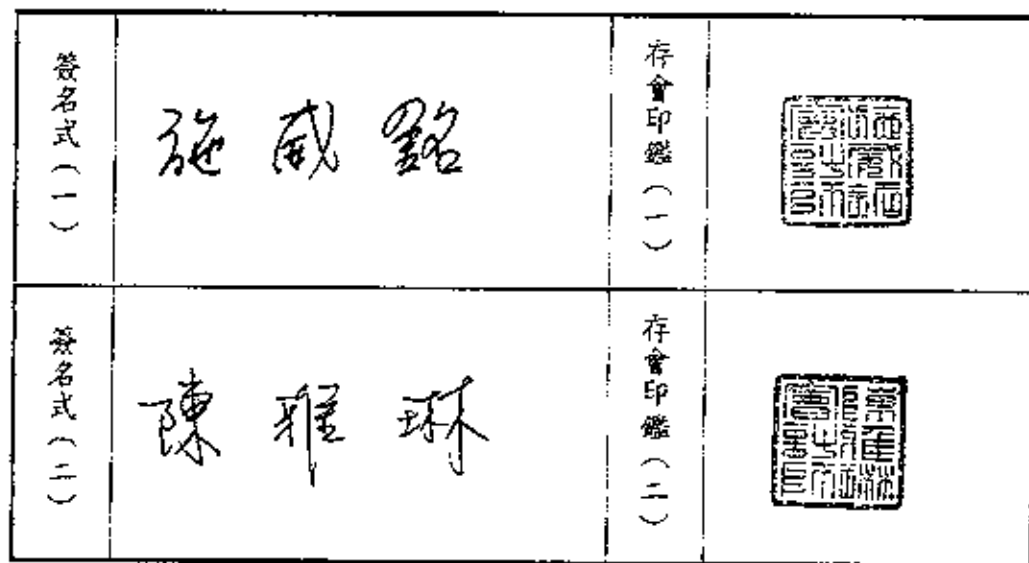 簽名式（一）
施威銘
存會印鑑（一）
簽名式（二）
陳雅琳
存會印鑑（二）